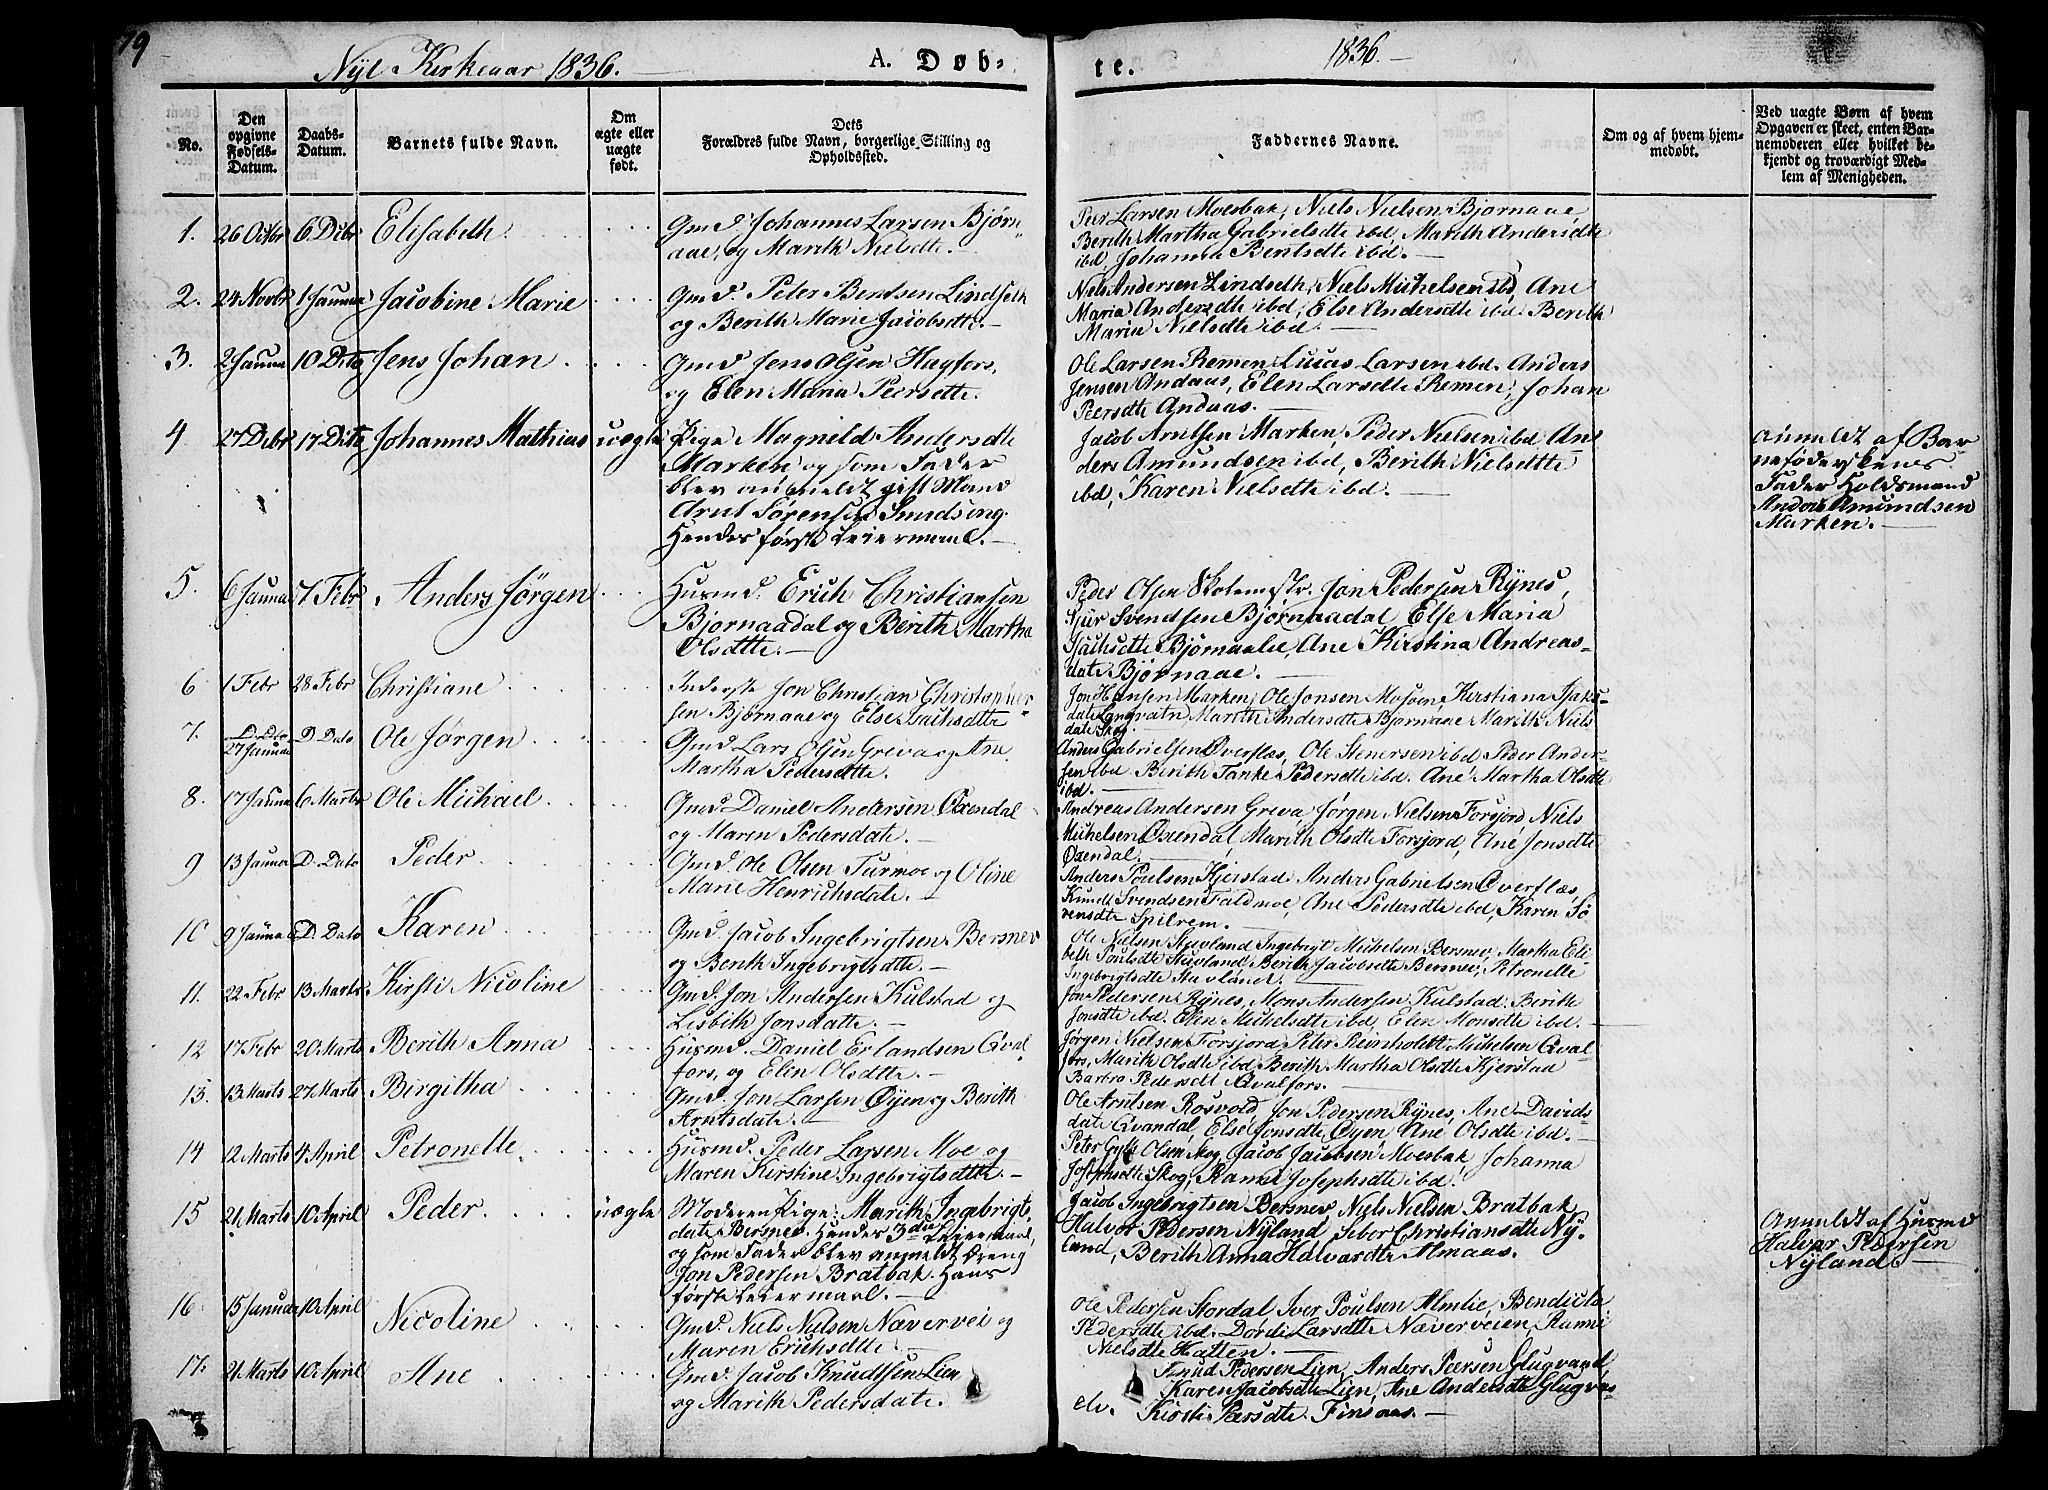 79
Nyt Kirkeaar 1836.
A. Døb-
te.
1836.
No.
Den opgivne Fødsels-Datum.
Daabs-Datum.
Barnets fulde Navn.
Om ægte eller uægte født.
Dets Forældres fulde Navn, borgerlige Stilling og Opholdssted.
Faddernes Navne.
Om og af hvem hjemmedøbt.
Ved uægte Børn af hvem Opgaven er skeet, enten Barnemoderen eller hvilket bekjendt og troværdigt Medlem af Menigheden.
1. 26 Octbr 6 Dcbr Elisabeth
Gmd. Johannes Larsen Bjørn-
aae, og Marith Nielsdte.
Peer Larsen Moesbak, Niels Nielsen Bjørnaae,
Berith Martha Gabrielsdte ibd, Marith Andersdte
ibd, Johanna Bentsdte ibd.
2. 24 Novbr 1 Januar Jacobine Marie
Gmd. Peter Bentsen Lindseth
og Berith Marie Jacobsdte.
Niels Andersen Lindseth, Niels Michelsen ibd, Ane
Maria Andersdte ibd, Else Andersdte ibd. Berith
Maria Nielsdte ibd.
3. 2 Januar 10 Dito Jens Johan
Gmd. Jens Olsen Hagfors,
og Elen Maria Peersdtte.
Ole Larsen Remen, Lucas Larsen ibd. Anders
Jensen Andaas, Elen Larsdte Remen, Johan
Peersdte Andaas.
4 27 Dcbr 17 Dito Johannes Mathias uægte
Pige Magnild Andersdtte
Marken og som Fader
blev anmeldt gift Mand
Arnt Sørensen Smedsing.
Hendes første Leiermaal.
Jacob Arntsen Marken, Peder Nielsen ibd An-
ders Amundsen ibd, Berith Nielsdtte
ibd, Karen Nielsdtte ibd.
Anmeldt af Bar-
nefødeskens
Fader Holdsmand
Anders Amundsen
Marken.
5. 6 Janua 7 Febr Anders Jörgen
Husmd. Erich Christiansen
Bjørnaadal og Berith Martha
Olsdtte.
Peder Olsen Skolemstr. Jon Pedersen Rynes,
Sjur Svendsen Bjørnaadal, Else Maria
Bjørnaalie, Ane Kirstina Andreas-
date Bjørnaae.
6 1 Febr 28 Febr Christiane
Inderste Jon Christian Christopher-
sen Bjørnaae og Else
Jon Hansen Marken, Ole Jonsen Kirstiana
date Langvatn Marith Andersdte Bjørnaae Marith Niels
date Skog.
7. 27 Januar D. Dato Ole Jörgen
Gmd Lars Olsen Greva og Ane
Martha Pedersdtte.
Anders Gabrielsen Øverflæs, Ole Stenersen ibd Peder Ander-
sen ibd Berith Tanke Pedersdte ibd. Ane Martha Olsdte
ibd.
8. 17 Janua 6 Marts Ole Michael
Gmd. Daniel Andersen Oxendal
og Maren Pedersdate.
Andreas Andersen Greva, Jørgen Nielsen Forsjord Niels
Michelsen Oxendal, Marith Olsdte Forsjord, Ane Jonsdte
Oxendal.
9 13 Janua D. Dato Peder
Gmd. Ole Olsen Turmoe og Oline
Marie Henrichsdate.
Anders Poulsen Kjerstad. Anders Gabrielsen Øverflæs,
Knudt Svendsen Faldmoe, Ane Pedersdte ibd, Karen Sö-
rensdte Spilrem.
10 9 Janua D. Dato Karen
Gmd. Jacob Ingebrigtsen Bersnev
og Berith Ingebrigtsdte.
Ole Nielsen Stuvland Ingebrigt Michelsen Bersnev, Martha Eli-
beth Poulsdte Stuvland, Berith Jacobsdte Bersnev, Petronelle
Ingebrigtsdte Stuvland.
11. 22 Febr 13 Marts Kirsti Nicoline
Gmd. Jon Andersen Kulstad og
Lisbith Jonsdatte.
Jon Pedersen Rynes, Mons Andersen Kulstad. Berith
Jonsdte ibd. Elen Michelsdte ibd, Elen Monsdte ibd.
12 17 Febr 20 Marts Berith Anna
Husmd. Daniel Erlandsen Qval-
fors, og Elen Olsdtte.
Jørgen Nielsen Forsjord Peter Reinholdt Michelsen Qval-
fors, Marith Olsdte ibd, Berith Martha Olsdte Kjerstad
Barbro Pedersdt Qvalfors.
13. 13 Marts 27 Marts Birgitha
Gmd. Jon Larsen Øyen og Berith
Arntsdate.
Ole Arntsen Rosvold, Jon Pedersen Rynes, Ane Davids-
date Qvandal, Else Jonsdte Øyen, Ane Olsdte ibd.
14 12 Marts 4 April Petronelle
Husmd. Peder Larsen Moe og
Maren Kirstine Ingebrigtsdtte.
Peter Olsen Skog, Jacob Jacobsen Moesbak, Johanna
Josephsdte Skog, Josephsdte ibd.
15 21 Marts 10 April Peder. uægte
Moderen Pige: Marith Ingebrigts-
date Bersnev. Hendes 3die Leiermaal,
og som Fader blev anmeldt Dreng
Jon Pedersen Bratbak. Hans
første Leiermaal.
Jacob Ingebrigtsen Bersnev Niels Nielsen Bratbak,
Halvor Pedersen Nyland, Sebor Christiansdte Ny-
land, Berith Anna Halvardtte Almaas.
Anmeldt af Husmd
Halvor Pedersen
Nyland
16 15 Januar 10 April Nicoline
Gmd. Niels Nielsen Nævervei og
Maren Erichsdtte.
Ole Pedersen Stordal Iver Poulsen Almlie, Bendicta
Pedersdte ibd. Dørdi Larsdtte Næverveien,
Nielsdte Hatten.
17. 21 Marts 10 April Ane
Gmd. Jacob Knudtsen Lien
og Marith Pedersdate.
Knud Pedersen Lien, Anders Peersen Glugvand,
Karen Jacobsdte Lien, Ane Andersdte Glugvas-
elv. Kirsti Larsdte Finsaas.